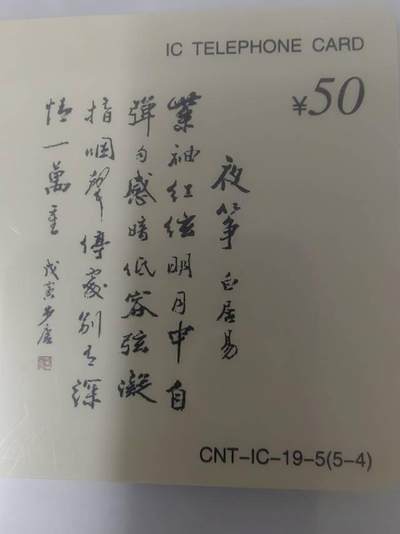 IC TELEPHONE CARD
¥50
夜筝 白居易
紫袖红弦明月中自
彈自感暗低容弦凝
指咽聲停處别有深
情一萬重 戊寅
CNT-IC-19-5(5-4)